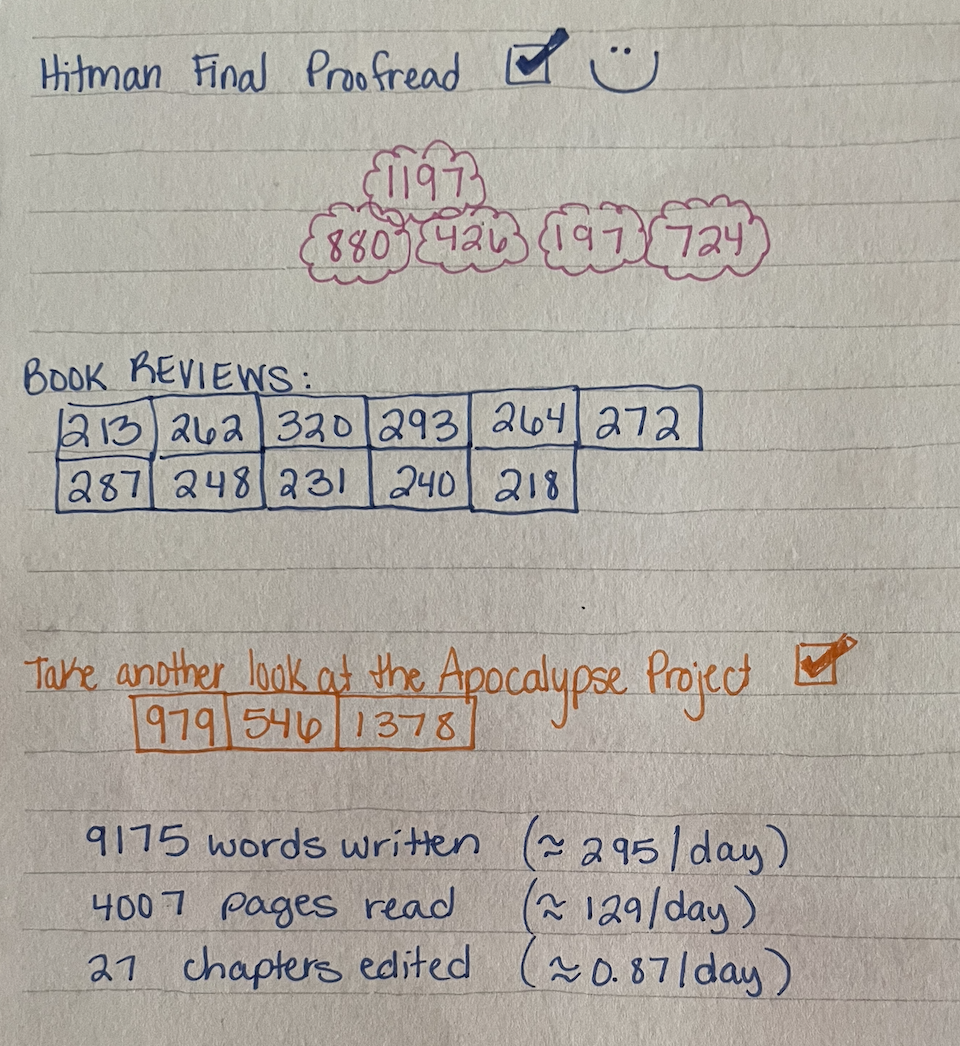 Hitman Final Proofread
1197
880 426 197 724
BOOK REVIEWS:
213 262 320 293 264 272
287 248 231 240 218
Take another look at the Apocalypse Project
979 546 1378
9175 words written (≈ 295/day)
4007 pages read (≈ 129/day)
27 chapters edited (≈ 0.87/day)